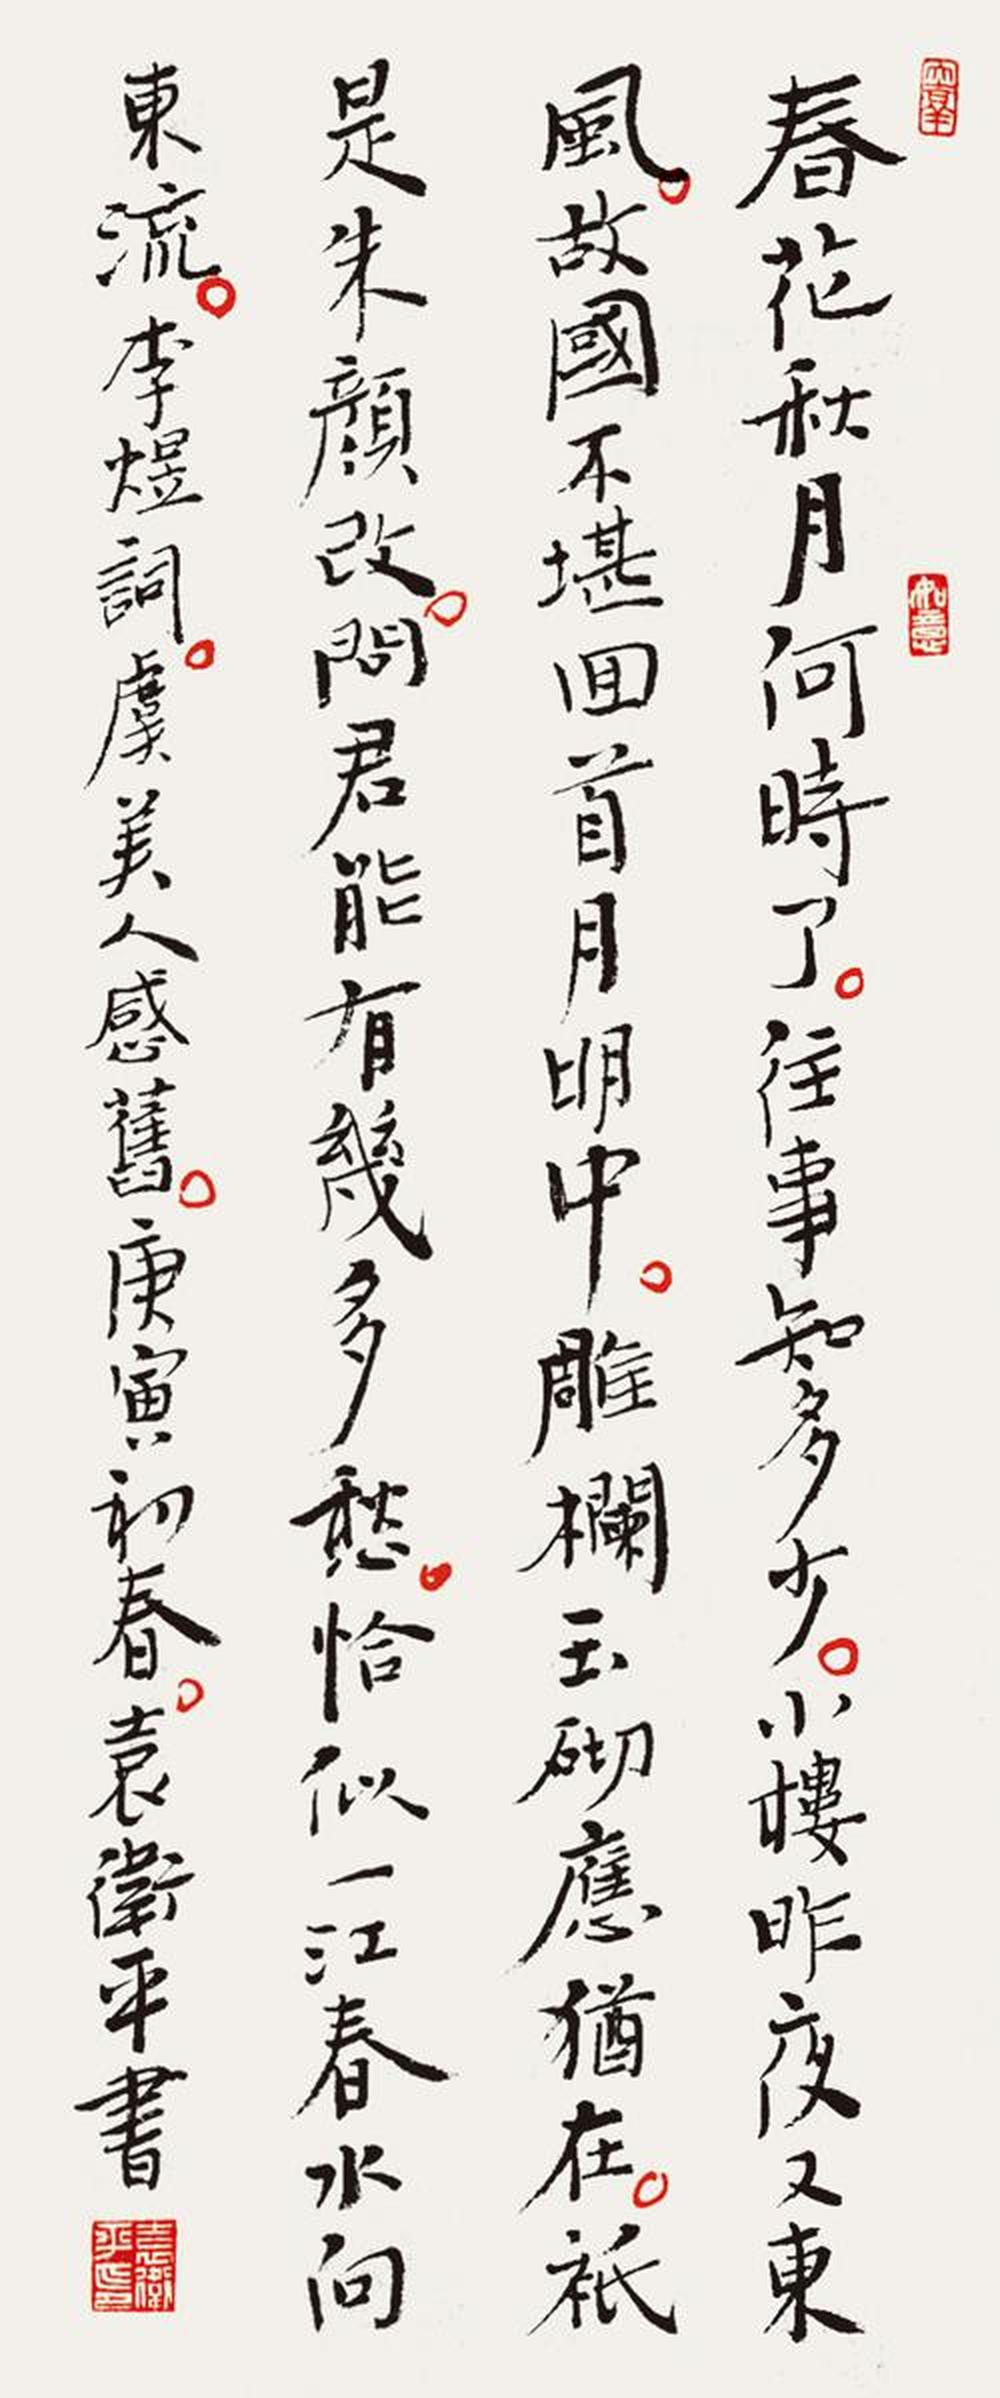 春花秋月何時了。往事知多少。小樓昨夜又東
風。故國不堪回首月明中。雕欄玉砌應猶在。祇
是朱顔改。問君能有幾多愁。恰似一江春水向
東流。李煜詞。虞美人感舊。庚寅初春。袁衛平書
如意
袁衛平印